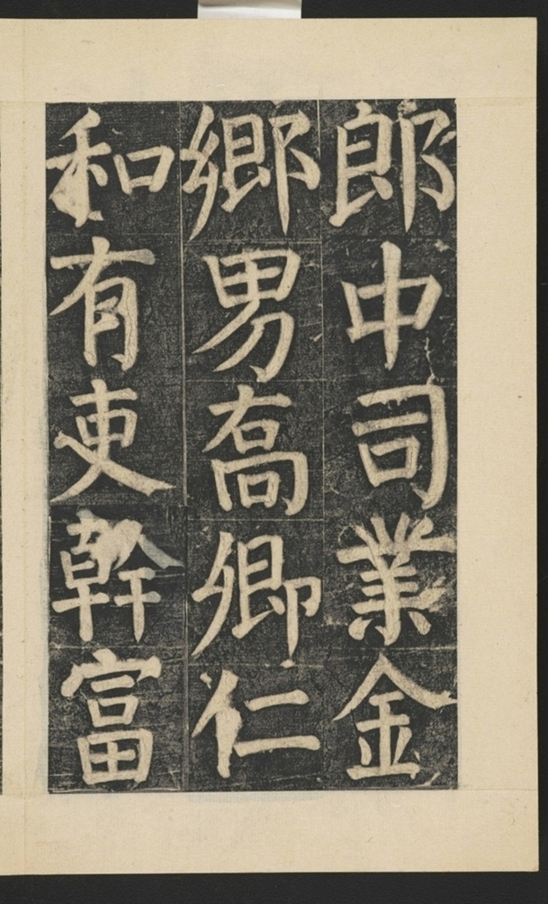 郎中司業金
鄉男喬卿仁
和有吏幹富